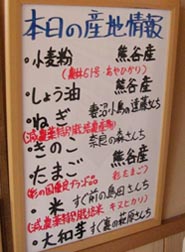 本日の産地情報
・小麦粉 熊谷産
(農林61号・あやひかり)
・しょう油 熊谷産
・ねぎ 妻沼小島の遠藤さんち
(減農薬特別栽培農産物)
・きのこ 奈良の森さんち
・たまご 熊谷産
(彩の国優良ブランド品) 彩たまご)
・米 すぐ前の島田さんち
(減農薬特別栽培米 キヌヒカリ)
・大和芋 すぐ裏の荻原さんち